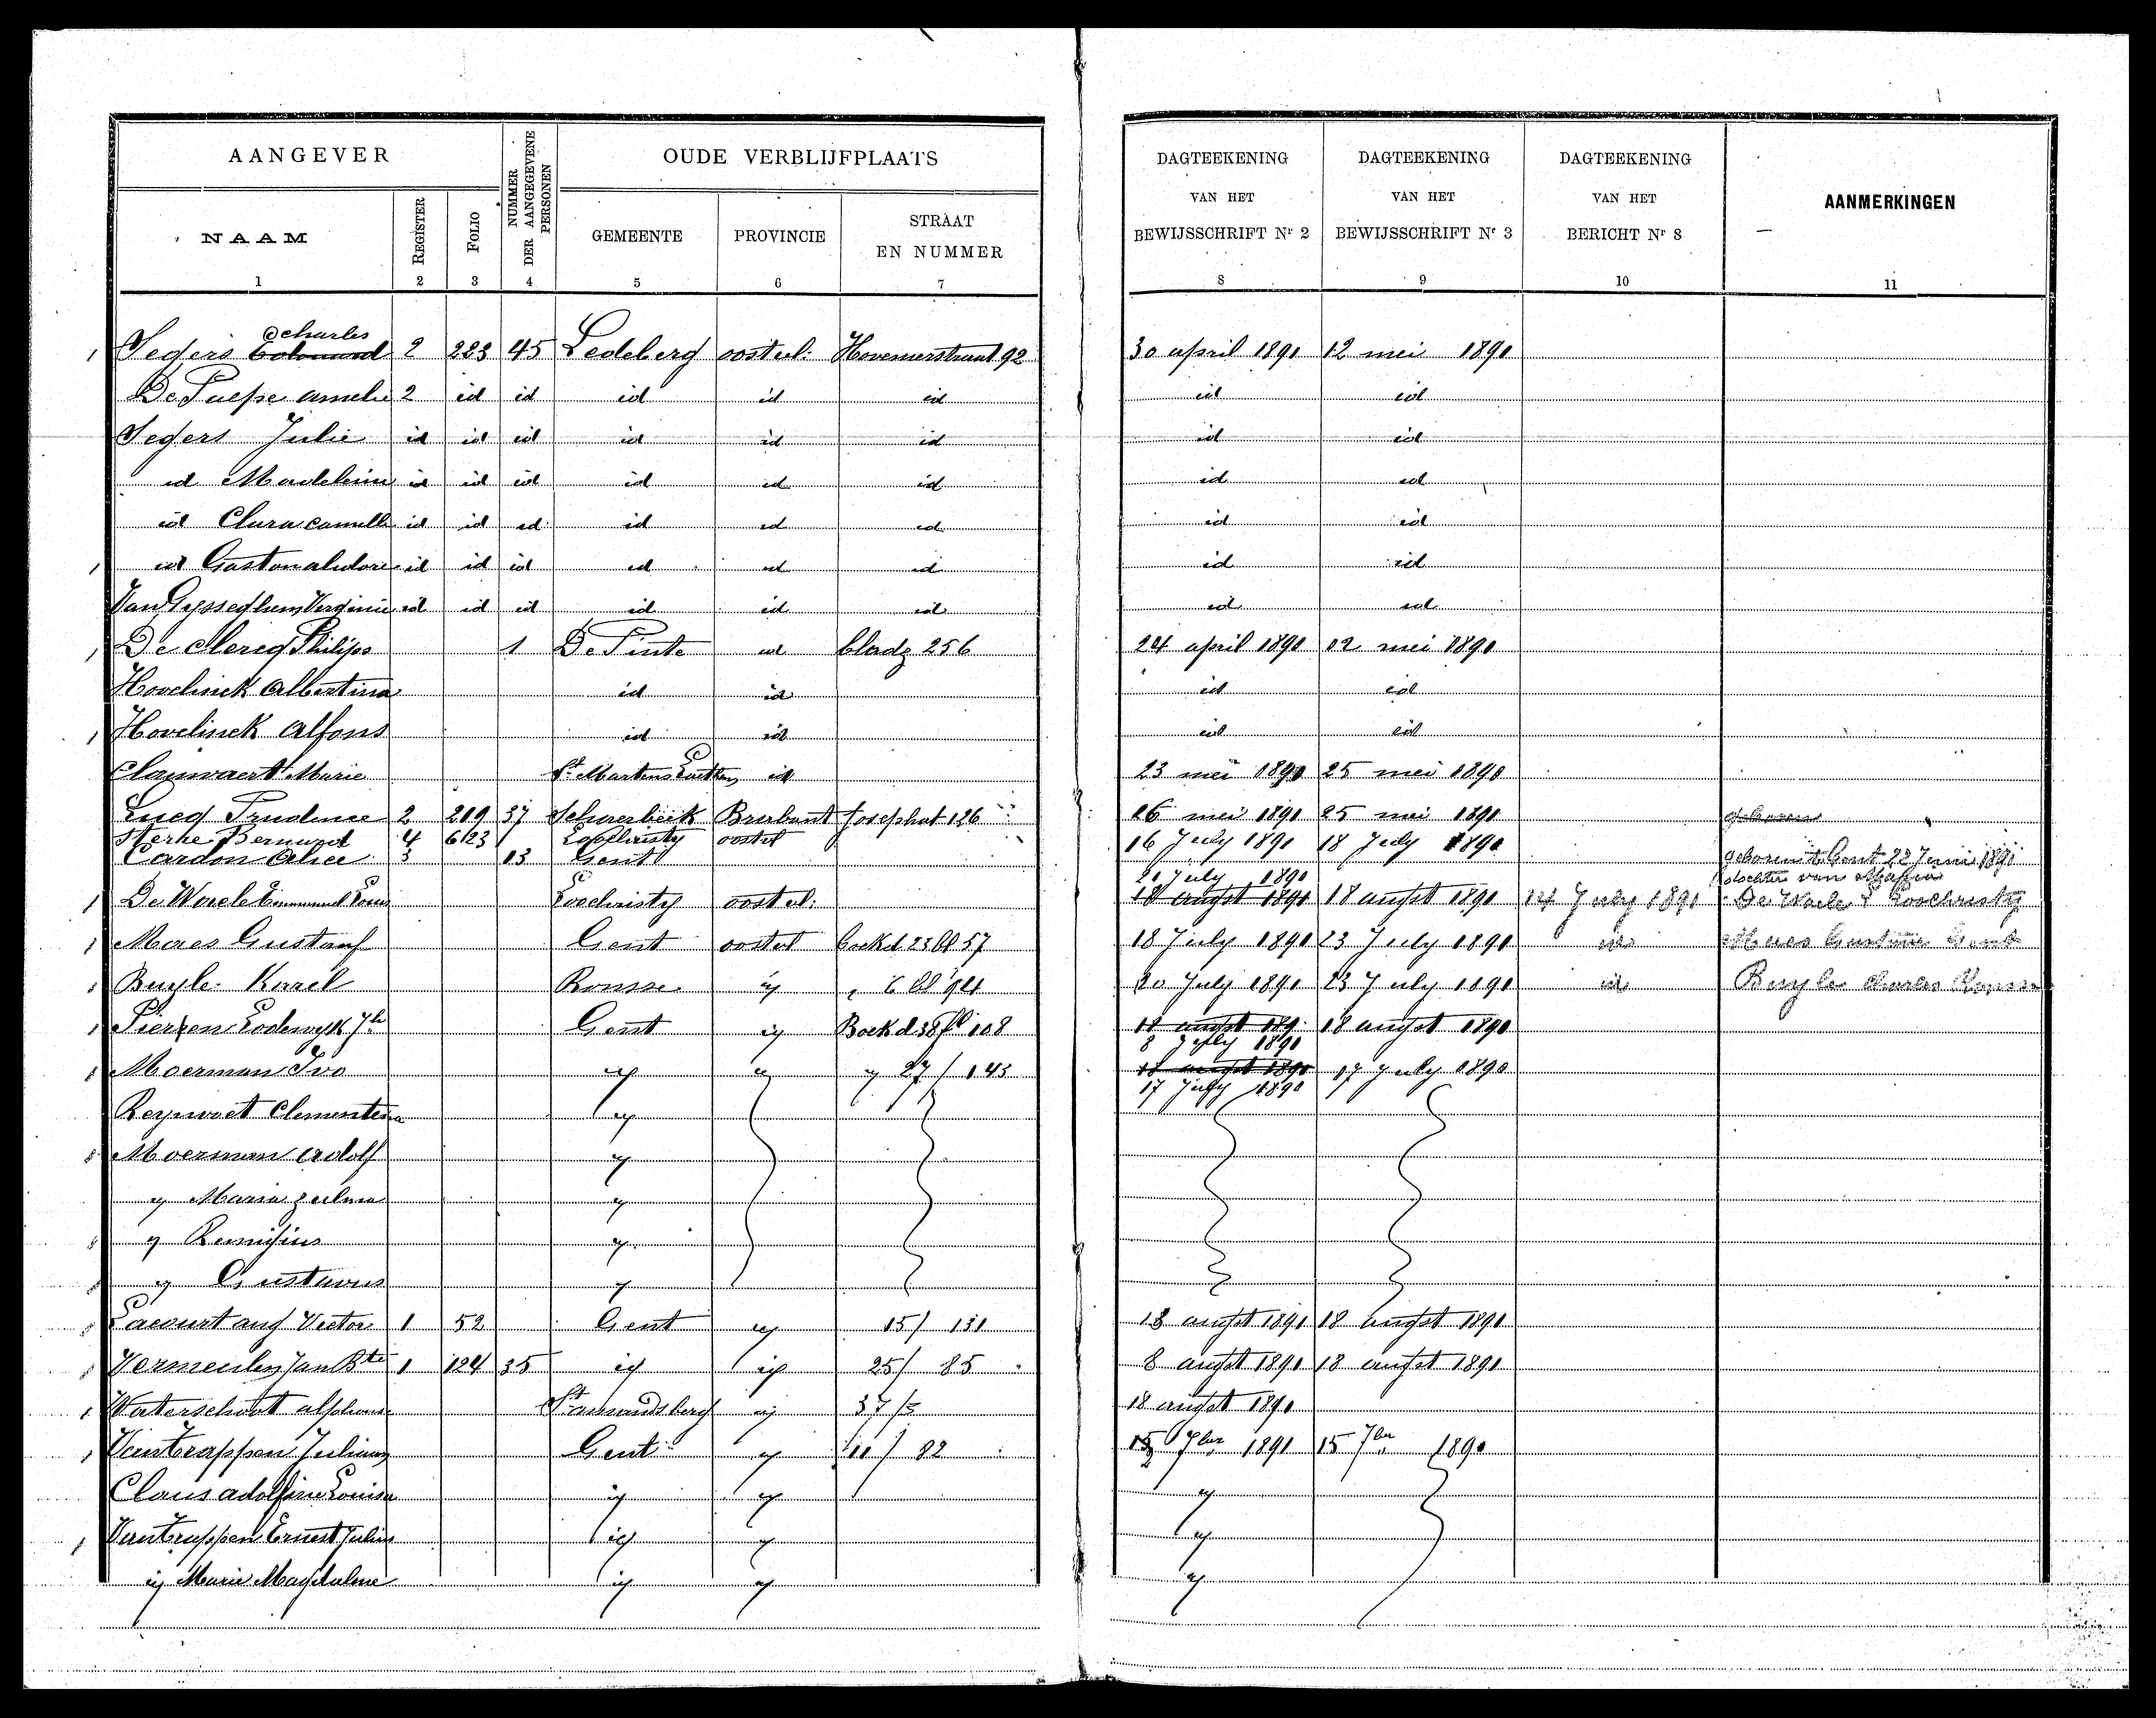 AANGEVER
NUMMER DER AANGEGEVENE PERSONEN
OUDE VERBLIJFPLAATS
DAGTEEKENING VAN HET BEWIJSSCHRIFT Nr 2
DAGTEEKENING VAN HET BEWIJSSCHRIFT Nr 3
DAGTEEKENING VAN HET BERICHT Nr 8
AANMERKINGEN
NAAM REGISTER FOLIO GEMEENTE PROVINCIE STRAAT EN NUMMER
1 2 3 4 5 6 7 8 9 10 11
charles
Segers 2 223 45 Ledeberg oostvl: 92 30 april 1891 12 mei 1891
De Paepe Amelie 2 id id id id id id id
Segers Julie id id id id id id id id
id Madeleine id id id id id id id id
id Clara Camille id id id id id id id id
id Gaston id id id id id id id id
Van Gysseghem Verginie id id id id id id id id
De Clercq Philips 1 De Pinte id bladz 256 24 april 1891 12 mei 1891
Hovelinck Albertina id id id id
Hovelinck Alfons id id id id
Clauwaert Marie St Martens id 23 mei 1891 25 mei 1891
Lucq Prudence 2 219 37 Schaerbeek Brabant Josephat 126 26 mei 1891 25 mei 1891 geboren
Sterke Bernard 4 6123 1 Loochristy oostvl 16 July 1891 18 July 1891
Cardon Alice 3 13 Gent geboren te Gent 22 Juni 1891
20 July 1891 dochter van Maria
De Waele Emmanuel Louis Loochristy oostvl: 18 augst 1891 18 augst 1891 14 July 1891 De Waele Loochristy
Maes Gustaaf Gent oostvl boek d 23 bl 57 18 July 1891 23 July 1891 id Maes Gustave Gent
Buyle Karel Ronsse ij 6 bl 94 20 July 1891 23 July 1891 id Buyle Charles Ronsse
Pierpen Lodewyk Gent ij Boek d 38 fl 108 18 augst 189 18 augst 1891
8 July 1891
Moerman Ivo ij ij ij 27 / 143 18 augst 1891 17 July 1891
17 July 1891
Reynvoet Clementina ij
Moerman Adolf ij
ij Maria Zulma ij
ij Remigius ij
ij Gustavus ij
Lacourt aug Victor 1 52 Gent ij 15 / 131 18 augst 1891 18 augst 1891
Vermeulen Jan Bte 1 124 35 ij ij 25 / 85 8 augst 1891 18 augst 1891
Waterschoot alphonse St amandsberg ij 37 / 18 augst 1891
Vantrappen Gent ij 11 / 82 15 7ber 1891 15 7ber 1891
Claus adolfine Louisa ij ij ij
Vantrappen Ernest Julius ij ij ij
ij Marie Magdalene ij ij ij